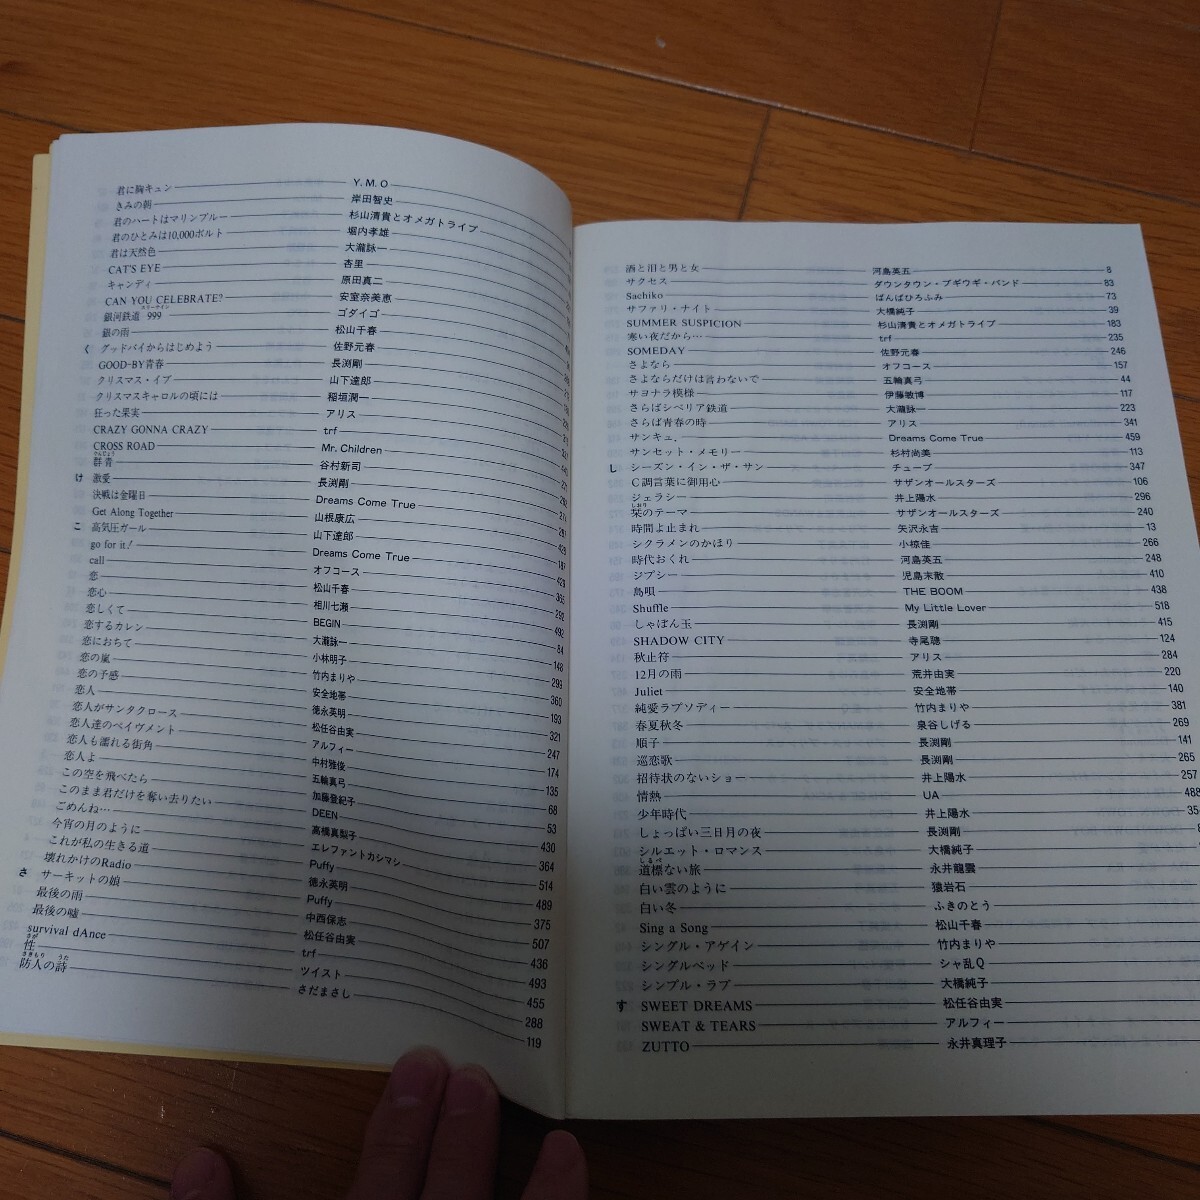 君に胸キュン Y.M.O
きみの朝 岸田智史
君のハートはマリンブルー 杉山清貴とオメガトライブ
君のひとみは10,000ボルト 堀内孝雄
君は天然色 大瀧詠一
CAT'S EYE 杏里
キャンディ 原田真二
CAN YOU CELEBRATE? 安室奈美恵
スリーナイン
銀河鉄道 999 ゴダイゴ
銀の雨 松山千春
く グッドバイからはじめよう 佐野元春
GOOD-BY青春 長渕剛
クリスマス・イブ 山下達郎
クリスマスキャロルの頃には 稲垣潤一
狂った果実 アリス
CRAZY GONNA CRAZY trf
CROSS ROAD Mr. Children
ぐんじょう
群青 谷村新司
け 激愛 長渕剛
決戦は金曜日 Dreams Come True
Get Along Together 山根康広
こ 高気圧ガール 山下達郎 187
go for it! Dreams Come True 429
call オフコース 365
恋 松山千春 292
恋心 相川七瀬 492
恋しくて BEGIN 84
恋するカレン 大瀧詠一 148
恋におちて 小林明子 299
恋の嵐 竹内まりや 360
恋の予感 安全地帯 193
恋人 徳永英明 321
恋人がサンタクロース 松任谷由実 247
恋人達のペイヴメント アルフィー 174
恋人も濡れる街角 中村雅俊 135
恋人よ 五輪真弓 68
この空を飛べたら 加藤登紀子 53
このまま君だけを奪い去りたい DEEN 430
ごめんね… 高橋真梨子 364
今宵の月のように エレファントカシマシ 514
これが私の生きる道 Puffy 489
壊れかけのRadio 徳永英明 375
さ サーキットの娘 Puffy 507
最後の雨 中西保志 436
最後の嘘 松任谷由実 493
survival dAnce trf 455
さが
性 ツイスト 288
さきもり うた
防人の詩 さだまさし 119
酒と泪と男と女 河島英五 8
サクセス ダウンタウン・ブギウギ・バンド 83
Sachiko ばんばひろふみ 73
サファリ・ナイト 大橋純子 39
SUMMER SUSPICION 杉山清貴とオメガトライブ 183
寒い夜だから… trf 235
SOMEDAY 佐野元春 246
さよなら オフコース 157
さよならだけは言わないで 五輪真弓 44
サヨナラ模様 伊藤敏博 117
さらばシベリア鉄道 大瀧詠一 223
さらば青春の時 アリス 341
サンキュ. Dreams Come True 459
サンセット・メモリー 杉村尚美 113
し シーズン・イン・ザ・サン チューブ 347
C調言葉に御用心 サザンオールスターズ 106
ジェラシー 井上陽水 296
しおり
栞のテーマ サザンオールスターズ 240
時間よ止まれ 矢沢永吉 13
シクラメンのかほり 小椋佳 266
時代おくれ 河島英五 248
ジプシー 児島未散 410
島唄 THE BOOM 438
Shuffle My Little Lover 518
しゃぼん玉 長渕剛 415
SHADOW CITY 寺尾聰 124
秋止符 アリス 284
12月の雨 荒井由実 220
Juliet 安全地帯 140
純愛ラプソディー 竹内まりや 381
春夏秋冬 泉谷しげる 269
順子 長渕剛 141
巡恋歌 長渕剛 265
招待状のないショー 井上陽水 257
情熱 UA 488
少年時代 井上陽水 35
しょっぱい三日月の夜 長渕剛
シルエット・ロマンス 大橋純子
しるべ
道標ない旅 永井龍雲
白い雲のように 猿岩石
白い冬 ふきのとう
Sing a Song 松山千春
シングル・アゲイン 竹内まりや
シングルベッド シャ乱Q
シンプル・ラブ 大橋純子
す SWEET DREAMS 松任谷由実
SWEAT & TEARS アルフィー
ZUTTO 永井真理子